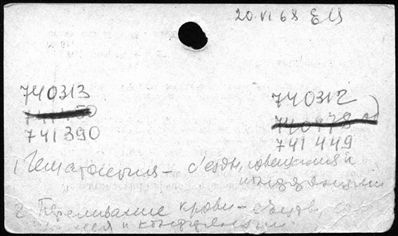 20.VI 68
740313 740312
741390 741449
1. Гематология – съезды, совещания и
конференции
2. Переливание крови – съезды
и конференции